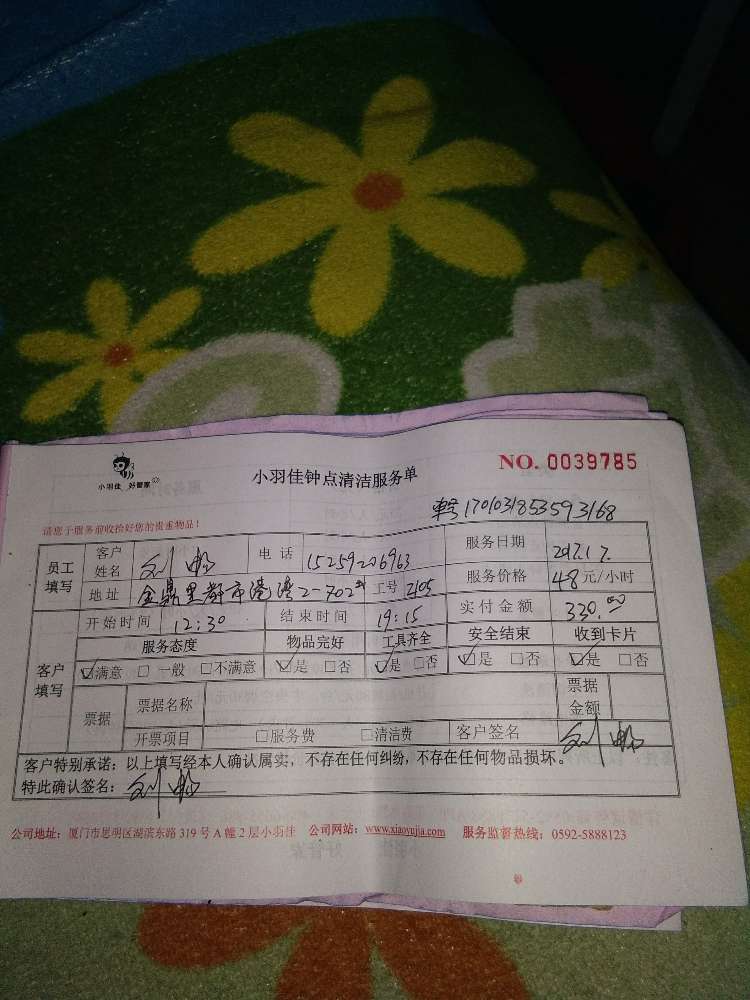 小羽佳 好管家
小羽佳钟点清洁服务单
NO. 0039785
请您于服务前收拾好您的贵重物品!
单号 170103185359 3168
员工填写 客户姓名 刘 电话 15259206963 服务日期 2017.1 7.
地址 金鼎里都市港湾2-702 工号 2105 服务价格 48 元/小时
开始时间 12:30 结束时间 19:15 实付金额 330.00
客户填写 服务态度 物品完好 工具齐全 安全结束 收到卡片
☑满意 □一般 □不满意 ☑是 □否 ☑是 □否 ☑是 □否 ☑是 □否
票据 票据名称 票据金额
开票项目 □服务费 □清洁费 客户签名 刘
客户特别承诺:以上填写经本人确认属实,不存在任何纠纷,不存在任何物品损坏。
特此确认签名: 刘
公司地址:厦门市思明区湖滨东路 319 号 A 幢 2 层小羽佳 公司网站:www.xiaoyujia.com 服务监督热线:0592-5888123